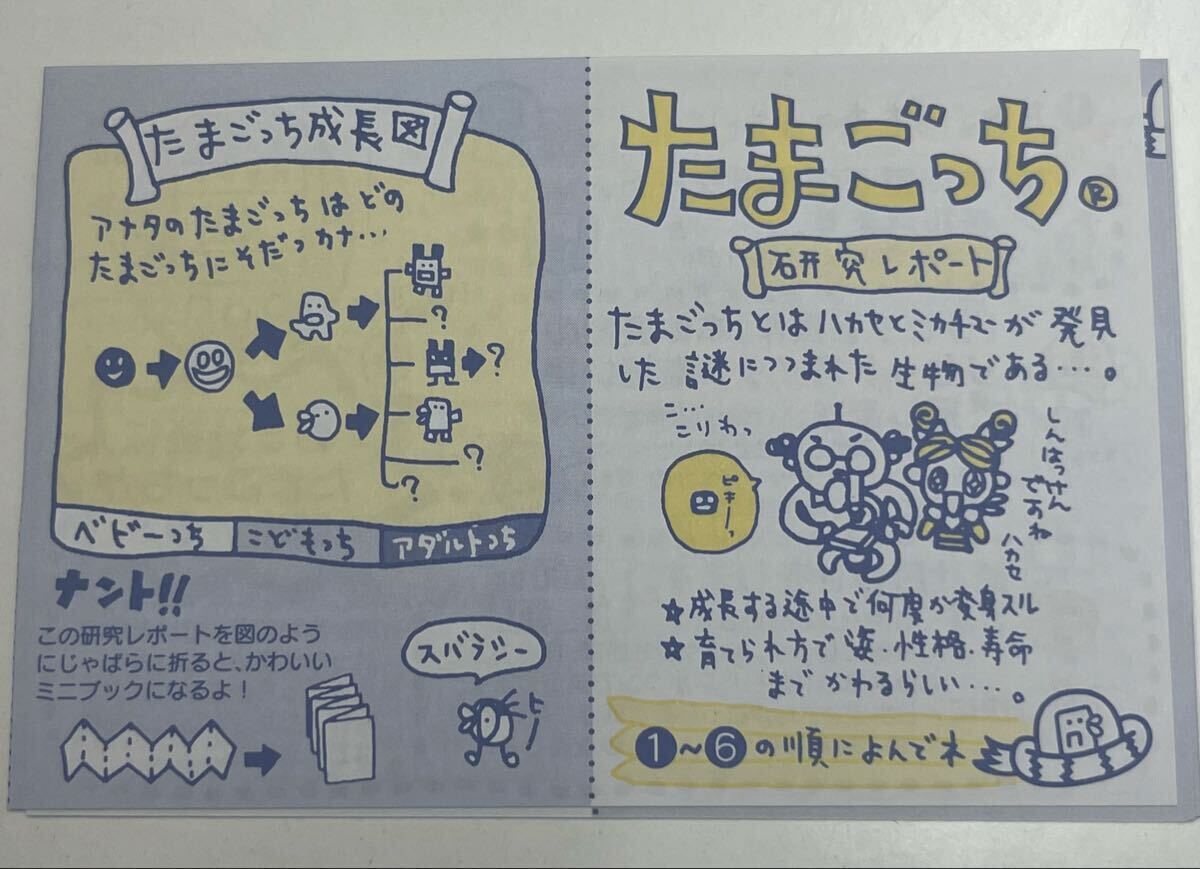 たまごっち成長図
アナタのたまごっちはどの
たまごっちにそだつカナ…
?
?
?
?
ベビーっち
こどもっち
アダルトっち
ナント!!
この研究レポートを図のよう
にじゃばらに折ると、かわいい
ミニブックになるよ！
スバラシー
たまごっち®
研究レポート
たまごっちとはハカセとミカチューが発見
した謎につつまれた生物である…。
こ…
こりわっ
ピキーっ
しんはっけん
ですね
ハカセ
☆成長する途中で何度か変身スル
☆育てられ方で姿・性格・寿命
までかわるらしい…。
1～6の順によんでネ